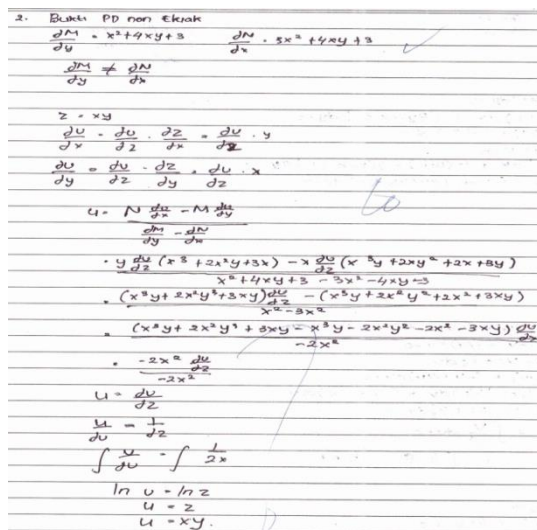 2. Bukti PD non Eksak
∂M/∂y = x² + 4xy + 3    ∂N/∂x = 3x² + 4xy + 3
∂M/∂y ≠ ∂N/∂x
z = xy
∂u/∂x = ∂u/∂z · ∂z/∂x = ∂u/∂z · y
∂u/∂y = ∂u/∂z · ∂z/∂y = ∂u/∂z · x
u = (N ∂u/∂x - M ∂u/∂y) / (∂M/∂y - ∂N/∂x)
= (y ∂u/∂z (x³ + 2x²y + 3x) - x ∂u/∂z (x²y + 2xy² + 2x + 3y)) / (x² + 4xy + 3 - 3x² - 4xy - 3)
= ((x³y + 2x²y² + 3xy) ∂u/∂z - (x³y + 2x²y² + 2x² + 3xy)) / (x² - 3x²)
= (x³y + 2x²y² + 3xy - x³y - 2x²y² - 2x² - 3xy) ∂u/∂z / (-2x²)
= (-2x² ∂u/∂z) / (-2x²)
u = ∂u/∂z
u/∂u = 1/∂z
∫ u/∂u = ∫ 1/2x
ln u = ln z
u = z
u = xy.